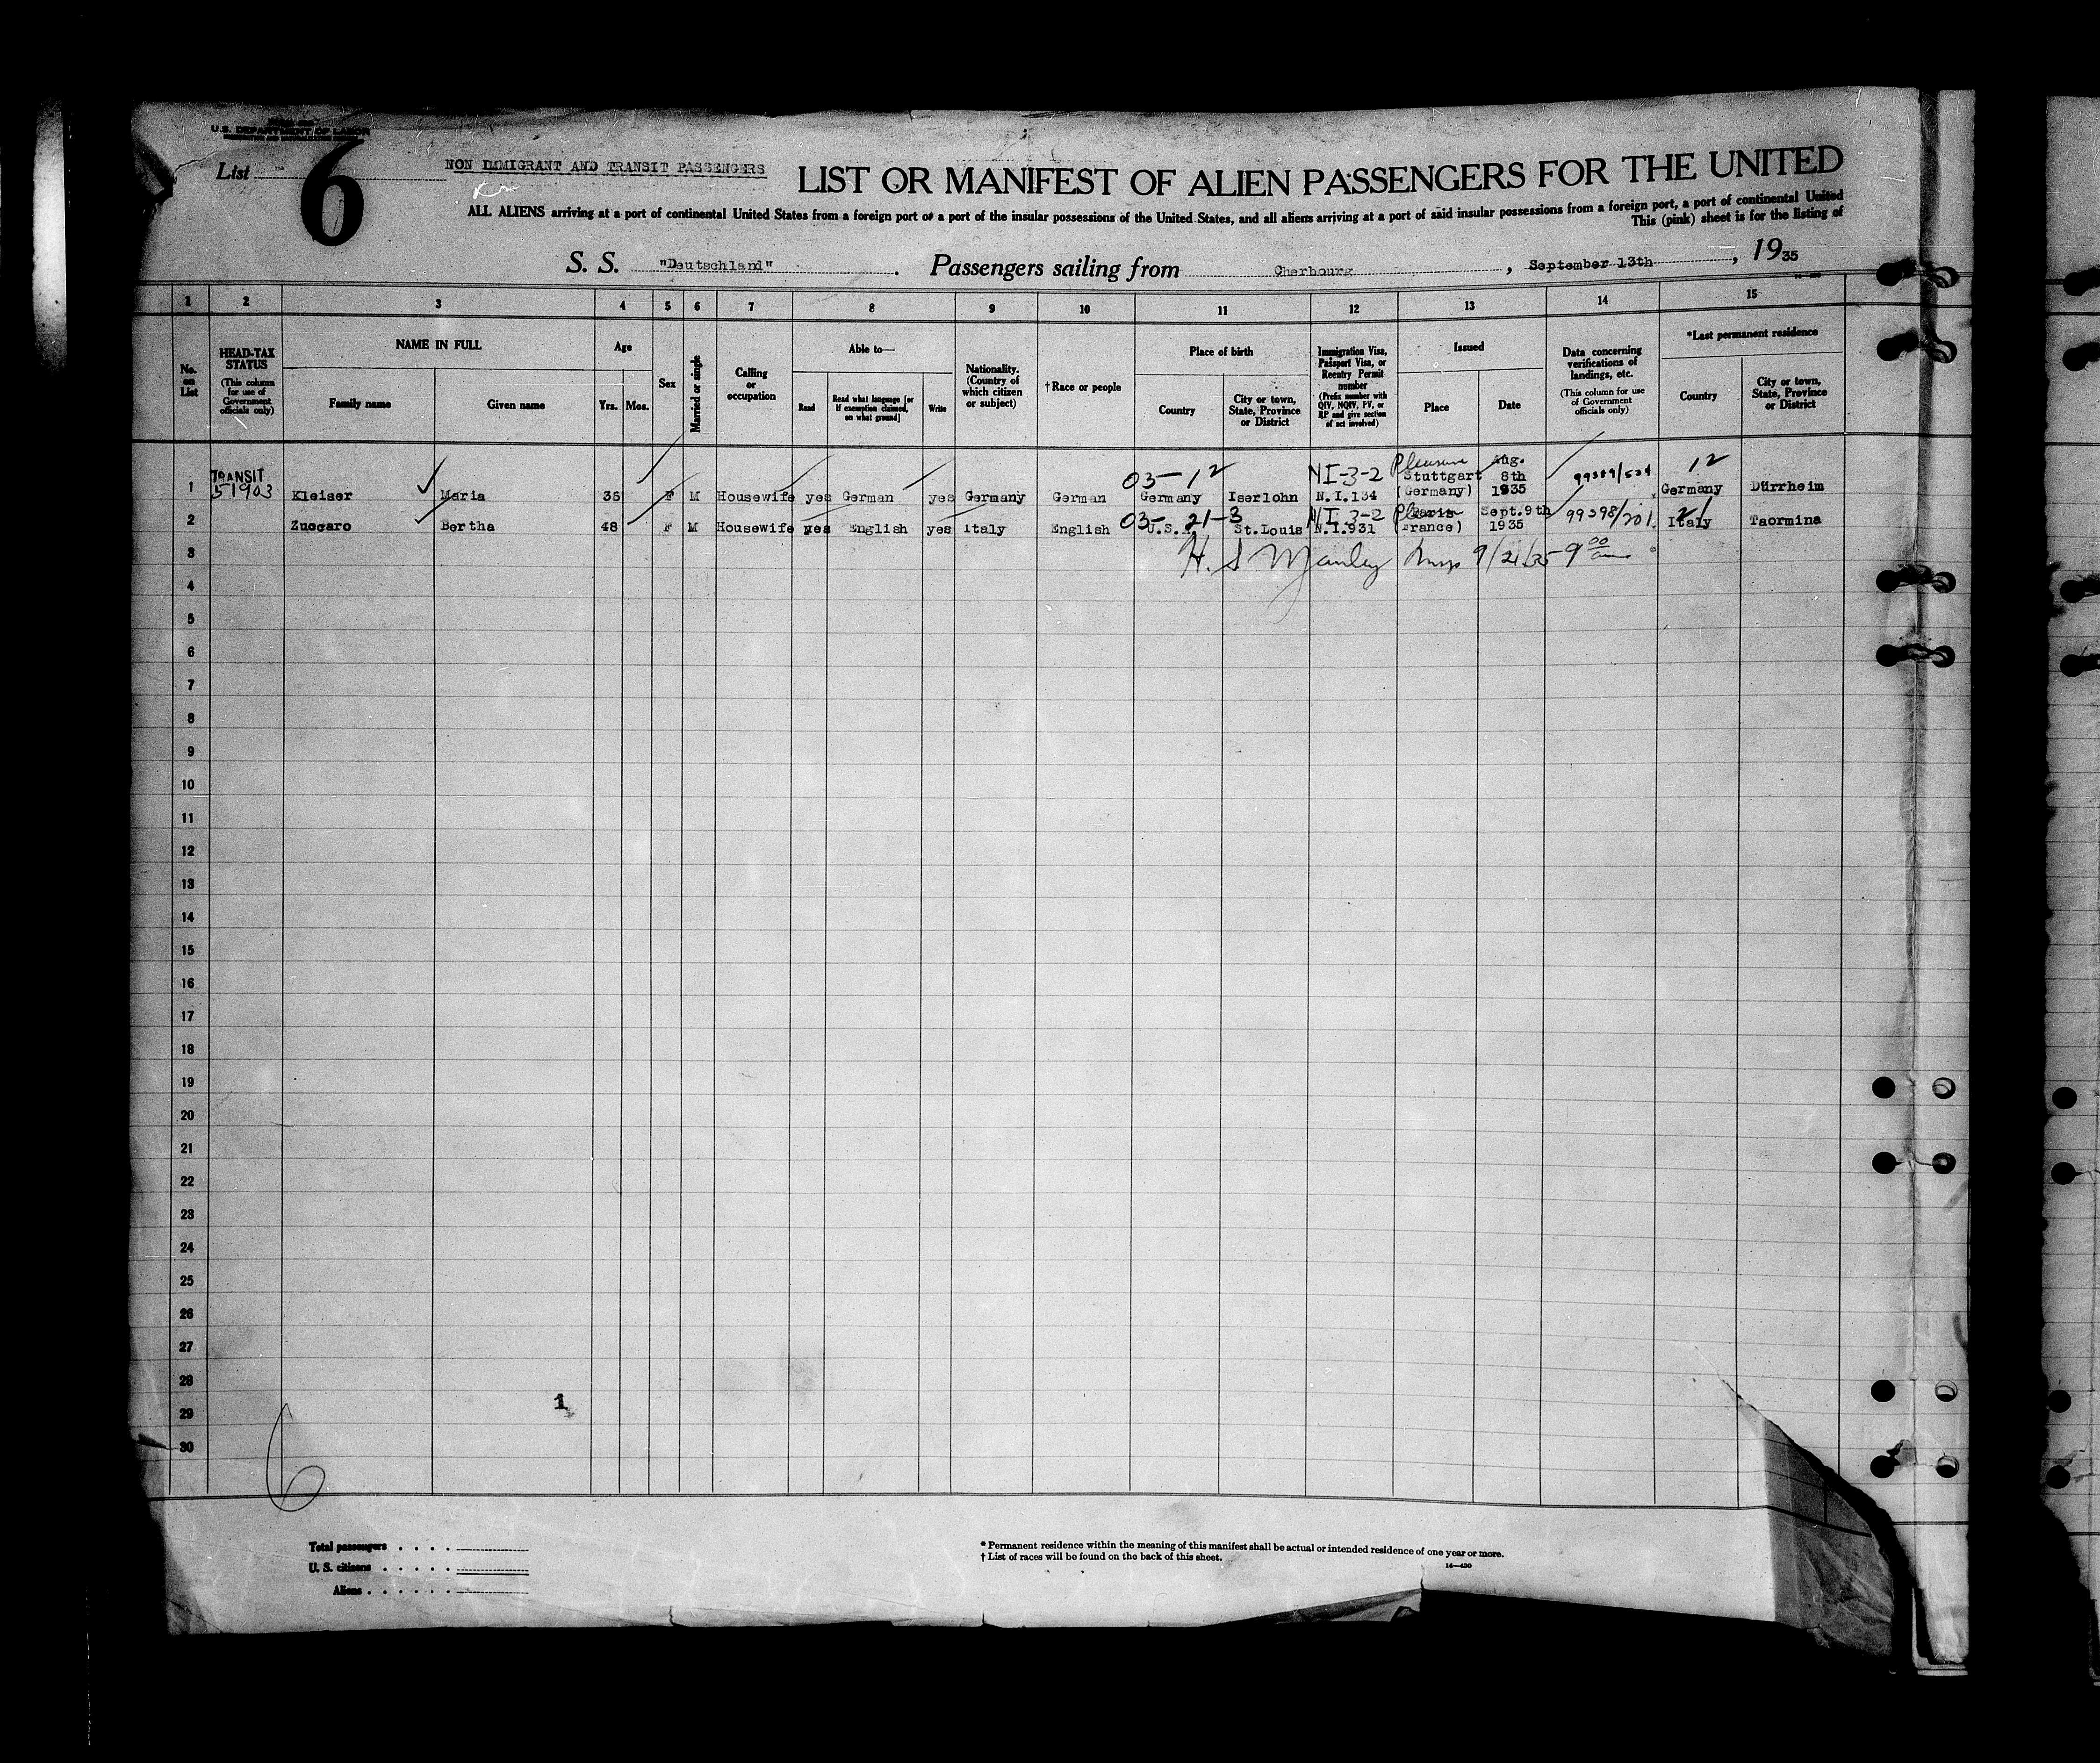 U.S. DEPARTMENT OF LABOR
List 6
NON IMMIGRANT AND TRANSIT PASSENGERS
LIST OR MANIFEST OF ALIEN PASSENGERS FOR THE UNITED
ALL ALIENS arriving at a port of continental United States from a foreign port or a port of the insular possessions of the United States, and all aliens arriving at a port of said insular possessions from a foreign port, a port of continental United
This (pink) sheet is for the listing of
S. S. "Deutschland". Passengers sailing from Cherbourg, September 13th, 1935
1 2 3 4 5 6 7 8 9 10 11 12 13 14 15
No. on List
HEAD-TAX STATUS (This column for use of Government officials only)
NAME IN FULL
Family name
Given name
Age
Yrs. Mos.
Sex
Married or single
Calling or occupation
Able to—
Read
Read what language [or if exemption claimed, on what ground]
Write
Nationality. (Country of which citizen or subject)
† Race or people
Place of birth
Country
City or town, State, Province or District
Immigration Visa, Passport Visa, or Reentry Permit number (Prefix number with QIV, NQIV, PV, or RP and give section of act involved)
Issued
Place
Date
Data concerning verifications of landings, etc. (This column for use of Government officials only)
*Last permanent residence
Country
City or town, State, Province or District
1 TRANSIT 51903 Kleiser Maria 35 F M Housewife yes German yes Germany German 03-12 Germany Iserlohn NI-3-2 N.I.134 Pleasure Stuttgart (Germany) Aug. 8th 1935 99389/534 12 Germany Dürrheim
2 Zuccaro Bertha 48 F M Housewife yes English yes Italy English 03-21-3 U.S. St.Louis NI-3-2 N.I.931 Paris France) Sept.9th 1935 99398/201 21 Italy Taormina
3 H. S Manley Insp 9/21/35 9 00 am
4
5
6
7
8
9
10
11
12
13
14
15
16
17
18
19
20
21
22
23
24
25
26
27
28
29 1
30
6
Total passengers
U. S. citizens
Aliens
* Permanent residence within the meaning of this manifest shall be actual or intended residence of one year or more.
† List of races will be found on the back of this sheet.
14—430